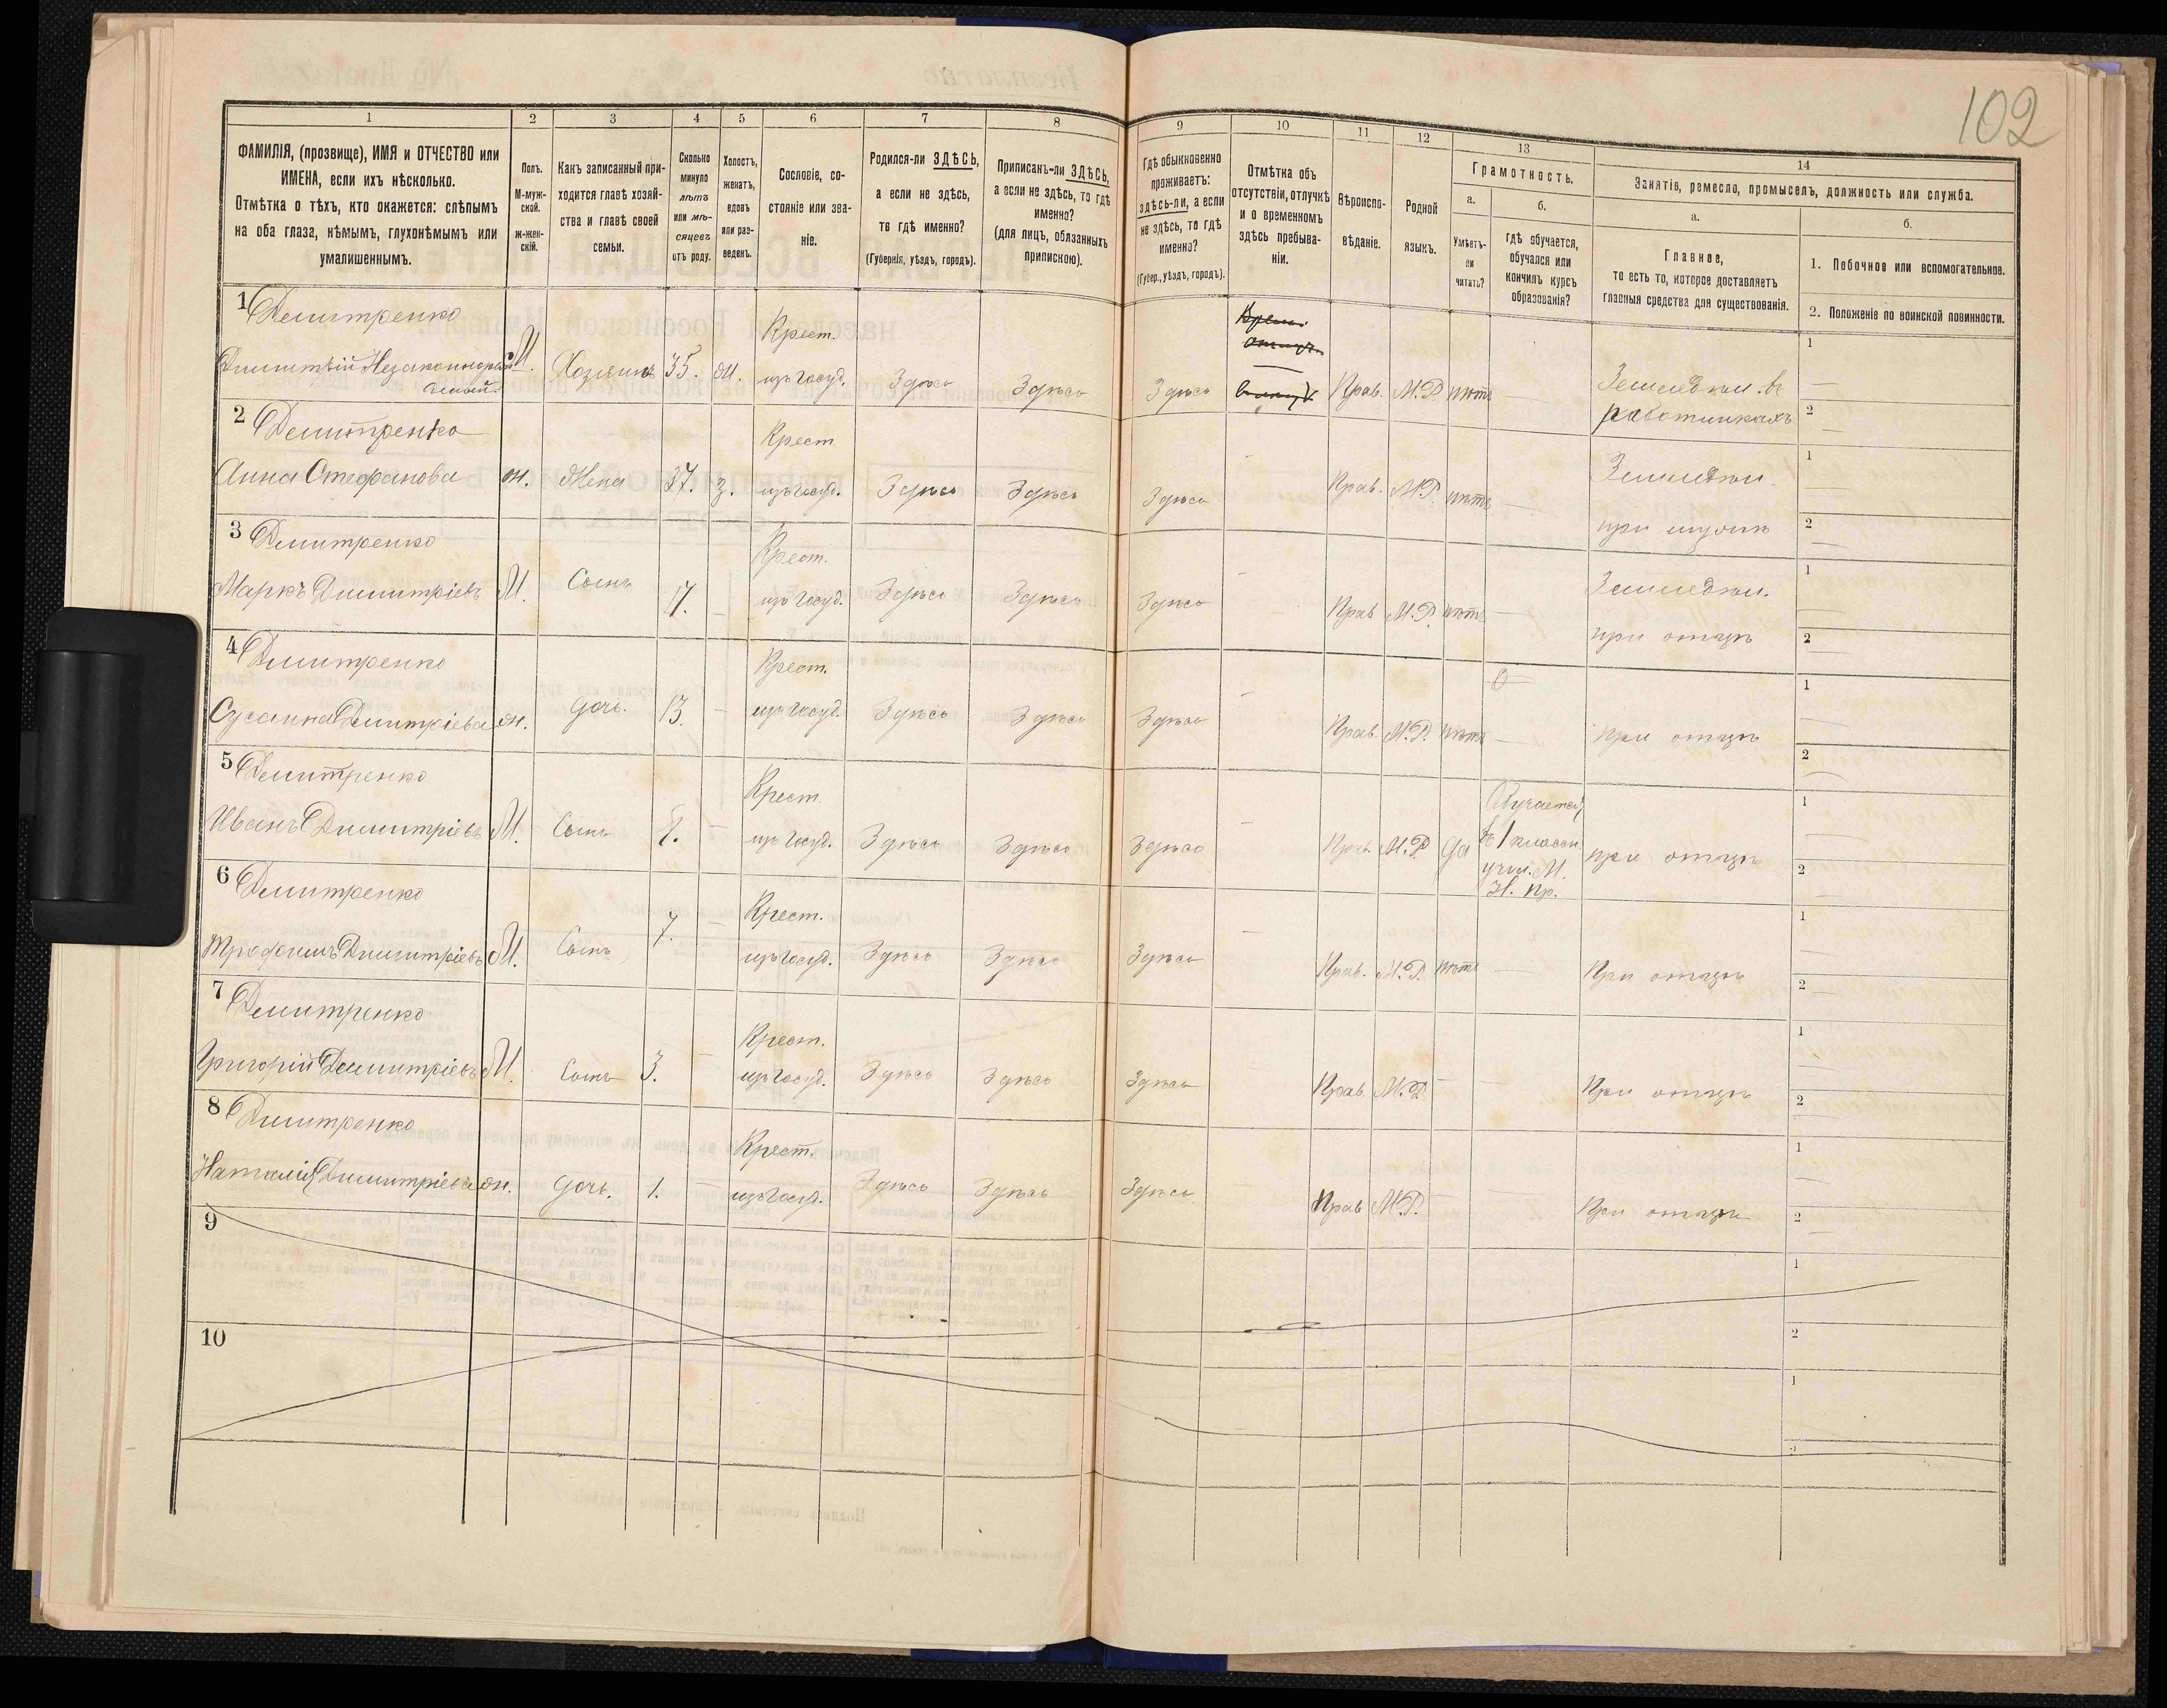 102
1 2 3 4 5 6 7 8 9 10 11 12 13 14
ФАМИЛІЯ, (прозвище), ИМЯ и ОТЧЕСТВО или
ИМЕНА, если ихъ нѣсколько.
Отмѣтка о тѣхъ, кто окажется: слѣпымъ
на оба глаза, нѣмымъ, глухонѣмымъ или
умалишеннымъ.
Полъ.
М-муж-
ской.
Ж-жен-
скій.
Какъ записанный при-
ходится главѣ хозяй-
ства и главѣ своей
семьи.
Сколько
минуло
лѣтъ
или мѣ-
сяцевъ
отъ роду.
Холостъ,
женатъ,
вдовъ
или раз-
веденъ.
Сословіе, со-
стояніе или зва-
ніе.
Родился-ли ЗДѢСЬ,
а если не здѣсь,
то гдѣ именно?
(Губернія, уѣздъ, городъ).
Приписанъ-ли ЗДѢСЬ,
а если не здѣсь, то гдѣ
именно?
(для лицъ, обязанныхъ
припискою).
Гдѣ обыкновенно
проживаетъ:
здѣсь-ли, а если
не здѣсь, то гдѣ
именно?
(Губер., уѣздъ, городъ).
Отмѣтка объ
отсутствіи, отлучкѣ
и о временномъ
здѣсь пребыва-
ніи.
Вѣроиспо-
вѣданіе.
Родной
языкъ.
Грамотность.
а.
Умѣетъ-
ли
читать?
б.
гдѣ обучается,
обучался или
кончилъ курсъ
образованія?
Занятіе, ремесло, промыселъ, должность или служба.
а.
Главное,
то есть то, которое доставляетъ
главныя средства для существованія.
б.
1. Побочное или вспомогательное.
2. Положеніе по воинской повинности.
1 Демитренко Крест. 1
Димитрій Незаконнорож М. Хозяинъ 35. Ж. изъ госуд. Здѣсь Здѣсь Здѣсь Прав. М.Р. нѣтъ Земледѣл. въ
работникахъ 2
2 Демитренко Крест. 1
Анна Стефанова Ж. Жена 37. З. изъ госуд. Здѣсь Здѣсь Здѣсь Прав. М.Р. нѣтъ Земледѣл.
при мужѣ 2
3 Демитренко Крест. 1
Маркъ Димитріевъ М. Сынъ 17. изъ госуд. Здѣсь Здѣсь Здѣсь Прав М.Р. нѣтъ Земледѣл.
при отцѣ 2
4 Демитренко Крест. 1
Сусанна Димитріева Ж. Дочь. 13. изъ госуд. Здѣсь Здѣсь Здѣсь Прав. М.Р. нѣтъ при отцѣ 2
5 Демитренко Крест. Обучается 1
Иванъ Димитріевъ М. Сынъ изъ госуд. Здѣсь Здѣсь Здѣсь Прав. М.Р. да въ 1 классн. при отцѣ
учил. М. 2
Н. Пр.
6 Демитренко Крест. 1
Трофимъ Димитріевъ М. Сынъ 7. изъ госуд. Здѣсь Здѣсь Здѣсь Прав. М.Р. нѣтъ При отцѣ 2
7 Демитренко Крест. 1
Григорій Димитріевъ М. Сынъ 3. изъ госуд. Здѣсь Здѣсь Здѣсь Прав. М.Р. При отцѣ 2
8 Демитренко Крест. 1
Наталія Димитріева Ж. Дочь. 1. изъ госуд. Здѣсь Здѣсь Здѣсь Прав М.Р. При отцѣ 2
9 1
2
10 1
2